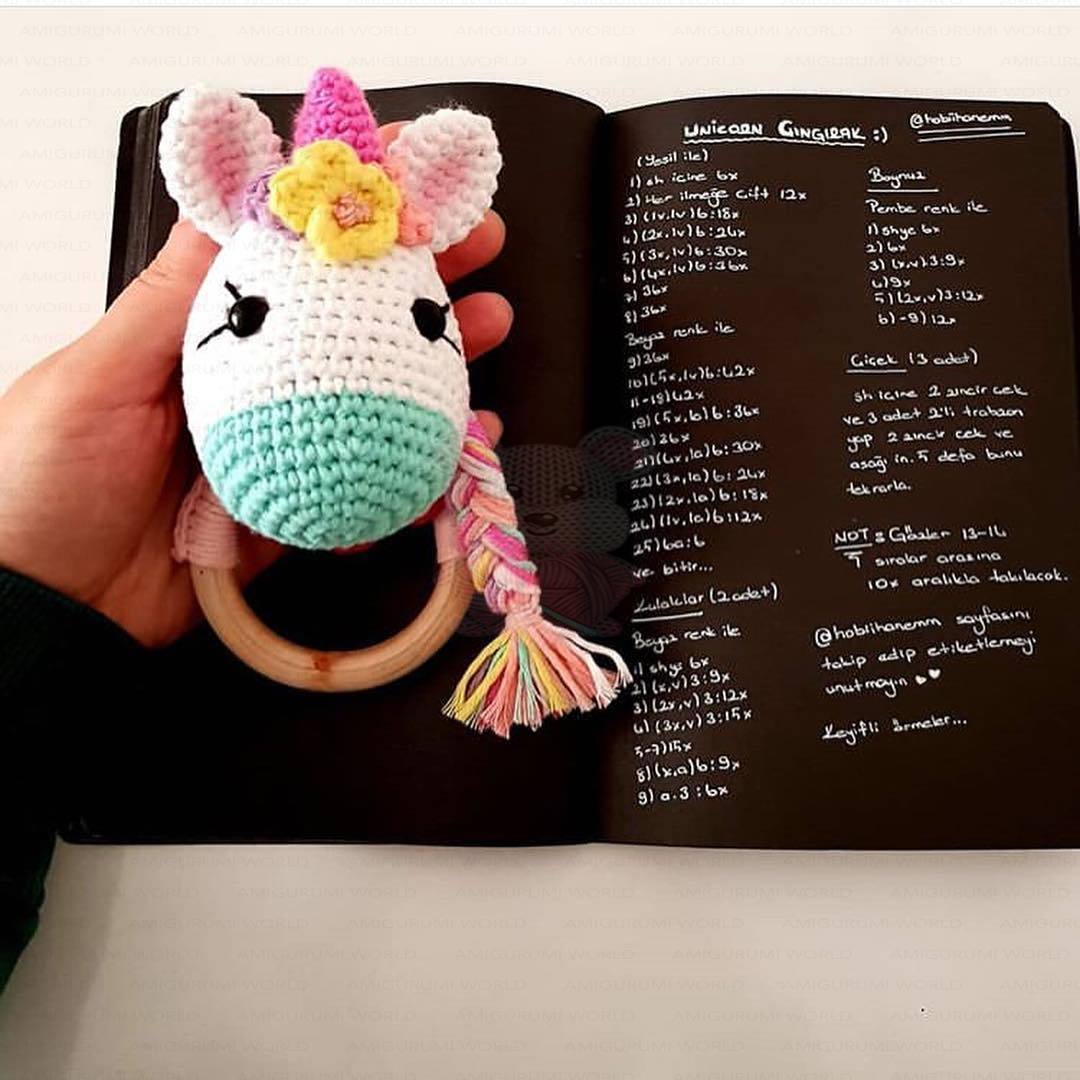 Unicorn Çıngırak :)
@hobiihanemm
(Yeşil ile)
1) sh içine 6x
2) Her ilmeğe çift 12x
3) (1x,1v)6:18x
4) (2x,1v)6:24x
5) (3x,1v)6:30x
6) (4x,1v)6:36x
7) 36x
8) 36x
Beyaz renk ile
9) 36x
10) (5x,1v)6:42x
11-18) 42x
19) (5x,1a)6:36x
20) 36x
21) (4x,1a)6:30x
22) (3x,1a)6:24x
23) (2x,1a)6:18x
24) (1x,1a)6:12x
25) 6a:6
ve bitir...
Kulaklar (2 adet)
Beyaz renk ile
1) shye 6x
2) (x,v)3:9x
3) (2x,v)3:12x
4) (3x,v)3:15x
5-7) 15x
8) (x,a)6:9x
9) a.3:6x
Boynuz
Pembe renk ile
1) shye 6x
2) 6x
3) (x,v).3:9x
4) 9x
5) (2x,v)3:12x
6)-9) 12x
Çiçek (3 adet)
sh içine 2 zincir çek
ve 3 adet 2'li trabzan
yap 2 zincir çek ve
aşağı in. 5 defa bunu
tekrarla.
NOT: Gözler 13-14
sıralar arasına
10x aralıkla takılacak.
@hobiihanemm sayfasını
takip edip etiketlemeyi
unutmayın
Keyifli örmeler...
AMIGURUMI WORLD